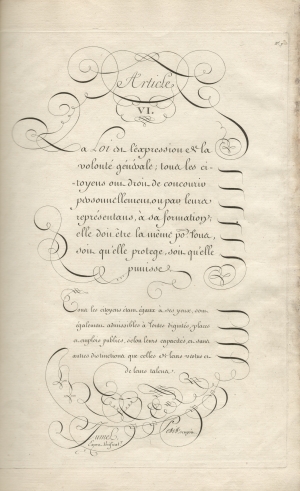 Article
VI.
La Loi est l'expression de la
volonté générale; tous les ci-
toyens ont droit de concourir
personnellement, ou par leurs
représentans, à sa formation;
elle doit être la même pr. tous,
soit qu'elle protege, soit qu'elle
punisse.
Tous les citoyens étant égaux à ses yeux, sont
également admissibles à toutes dignités, places
et emplois publics, selon leurs capacités, et sans
autres distinctions que celles de leurs vertus et
de leurs talens.
Jumel